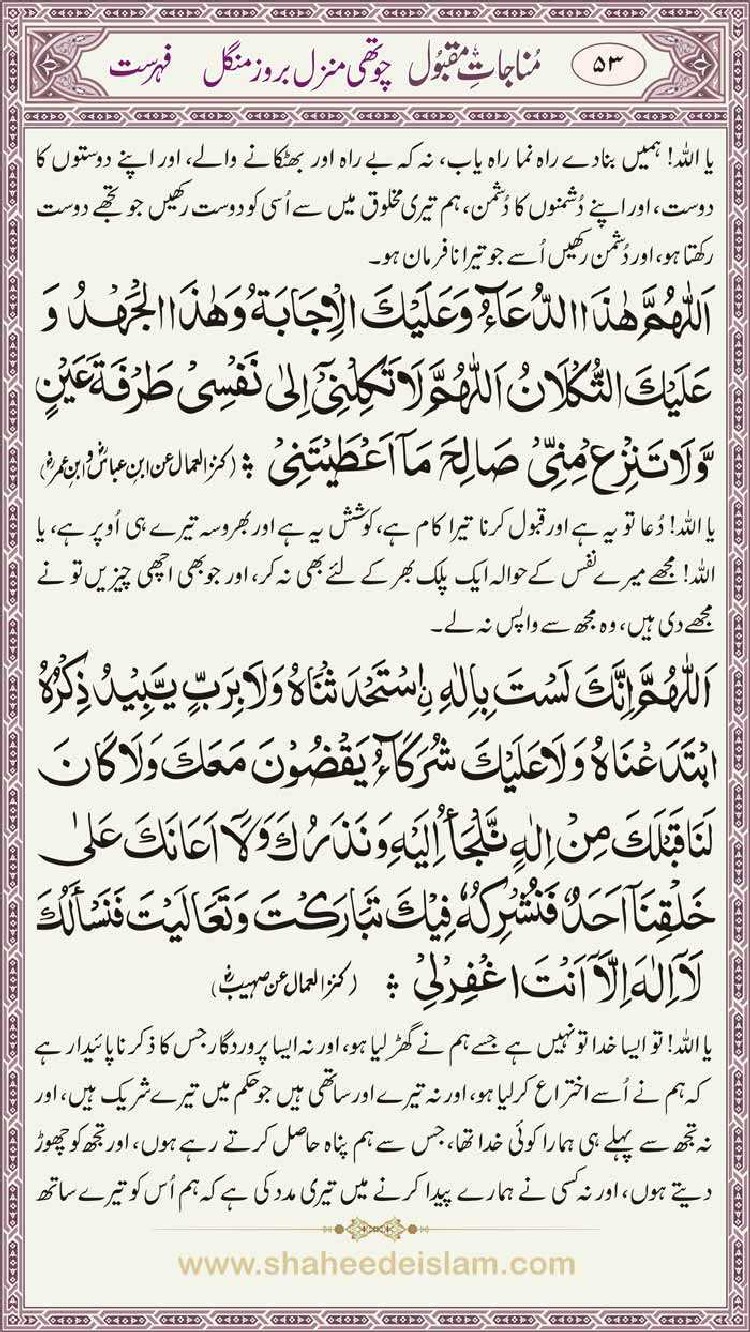 ۵۳ مُناجاتِ مقبُول چوتھی منزل بروز منگل فہرست
یا اللہ! ہمیں بنادے راہ نما راہ یاب، نہ کہ بے راہ اور بھٹکانے والے، اور اپنے دوستوں کا
دوست، اور اپنے دُشمنوں کا دُشمن، ہم تیری مخلوق میں سے اُسی کو دوست رکھیں جو تجھے دوست
رکھتا ہو، اور دُشمن رکھیں اُسے جو تیرا نافرمان ہو۔
اَللّٰهُمَّ هٰذَا الدُّعَآءُ وَعَلَيْكَ الْاِجَابَةُ وَهٰذَا الْجَهْدُ وَ
عَلَيْكَ التُّكْلَانُ اَللّٰهُمَّ لَا تَكِلْنِىْ اِلٰى نَفْسِىْ طَرْفَةَ عَيْنٍ
وَّلَا تَنْزِعْ مِنِّىْ صَالِحَ مَآ اَعْطَيْتَنِىْ ؞ (کنز العمال عن ابن عباسؓ و ابن عمرؓ)
یا اللہ! دُعا تو یہ ہے اور قبول کرنا تیرا کام ہے، کوشش یہ ہے اور بھروسہ تیرے ہی اُوپر ہے، یا
اللہ! مجھے میرے نفس کے حوالہ ایک پلک بھر کے لئے بھی نہ کر، اور جو بھی اچھی چیزیں تو نے
مجھے دی ہیں، وہ مجھ سے واپس نہ لے۔
اَللّٰهُمَّ اِنَّكَ لَسْتَ بِاِلٰهِ نِ اسْتَحْدَثْنَاهُ وَلَا بِرَبٍّ يَّبِيْدُ ذِكْرُهُ
ابْتَدَعْنَاهُ وَلَا عَلَيْكَ شُرَكَآءُ يَقْضُوْنَ مَعَكَ وَلَا كَانَ
لَنَا قَبْلَكَ مِنْ اِلٰهٍ نَّلْجَأُ اِلَيْهِ وَنَذَرُكَ وَلَآ اَعَانَكَ عَلٰى
خَلْقِنَآ اَحَدٌ فَنُشْرِكَهُ فِيْكَ تَبَارَكْتَ وَتَعَالَيْتَ فَنَسْأَلُكَ
لَآ اِلٰهَ اِلَّآ اَنْتَ اغْفِرْ لِىْ ؞ (کنز العمال عن صہیبؓ)
یا اللہ! تو ایسا خدا تو نہیں ہے جسے ہم نے گھڑ لیا ہو، اور نہ ایسا پروردگار جس کا ذکر ناپائیدار ہے
کہ ہم نے اُسے اختراع کرلیا ہو، اور نہ تیرے اور ساتھی ہیں جو حکم میں تیرے شریک ہیں، اور
نہ تجھ سے پہلے ہی ہمارا کوئی خدا تھا، جس سے ہم پناہ حاصل کرتے رہے ہوں، اور تجھ کو چھوڑ
دیتے ہوں، اور نہ کسی نے ہمارے پیدا کرنے میں تیری مدد کی ہے کہ ہم اُس کو تیرے ساتھ
www.shaheedeislam.com